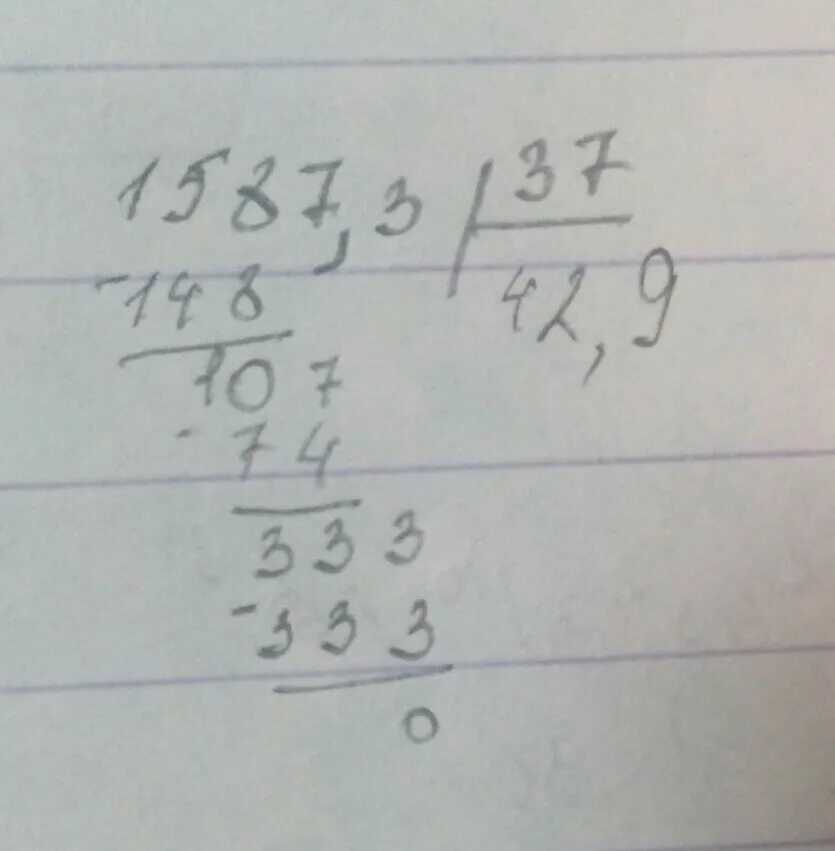 1587,3 37
-148 42,9
107
-74
333
-333
0